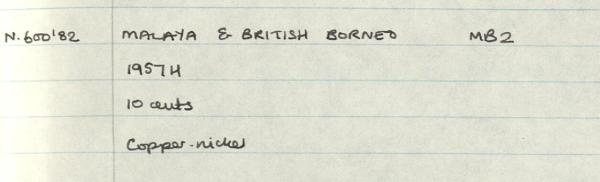 N.600'82 MALAYA & BRITISH BORNEO MB2
1957H
10 cents
Copper-nickel